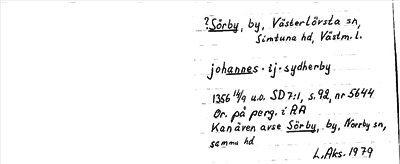 ?Sörby, by, Västerlövsta sn,
Simtuna hd, Västm. l.
johannes . ij . sydherby
1356 14/9 u.o. SD 7:1, s. 92, nr 5644
Or. på perg. i RA
Kan även avse Sörby, by, Norrby sn,
samma hd
L. Aks. 1979